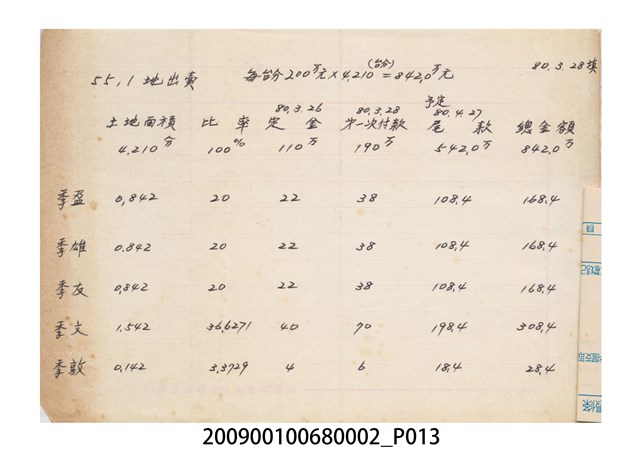 80.3.28填
55,1地出賣 每台分200万元×4,210(台分)=842,0万元
土地面積 比率 80.3.26定金 80.3.28第一次付款 予定80.4.27尾款 總金額
4.210分 100% 110万 190万 542,0万 842.0万
季盈 0,842 20 22 38 108,4 168,4
季雄 0.842 20 22 38 108,4 168,4
季友 0,842 20 22 38 108,4 168,4
季文 1.542 36,6271 40 70 198,4 308,4
季敦 0.142 3,3729 4 6 18,4 28,4
200900100680002_P013